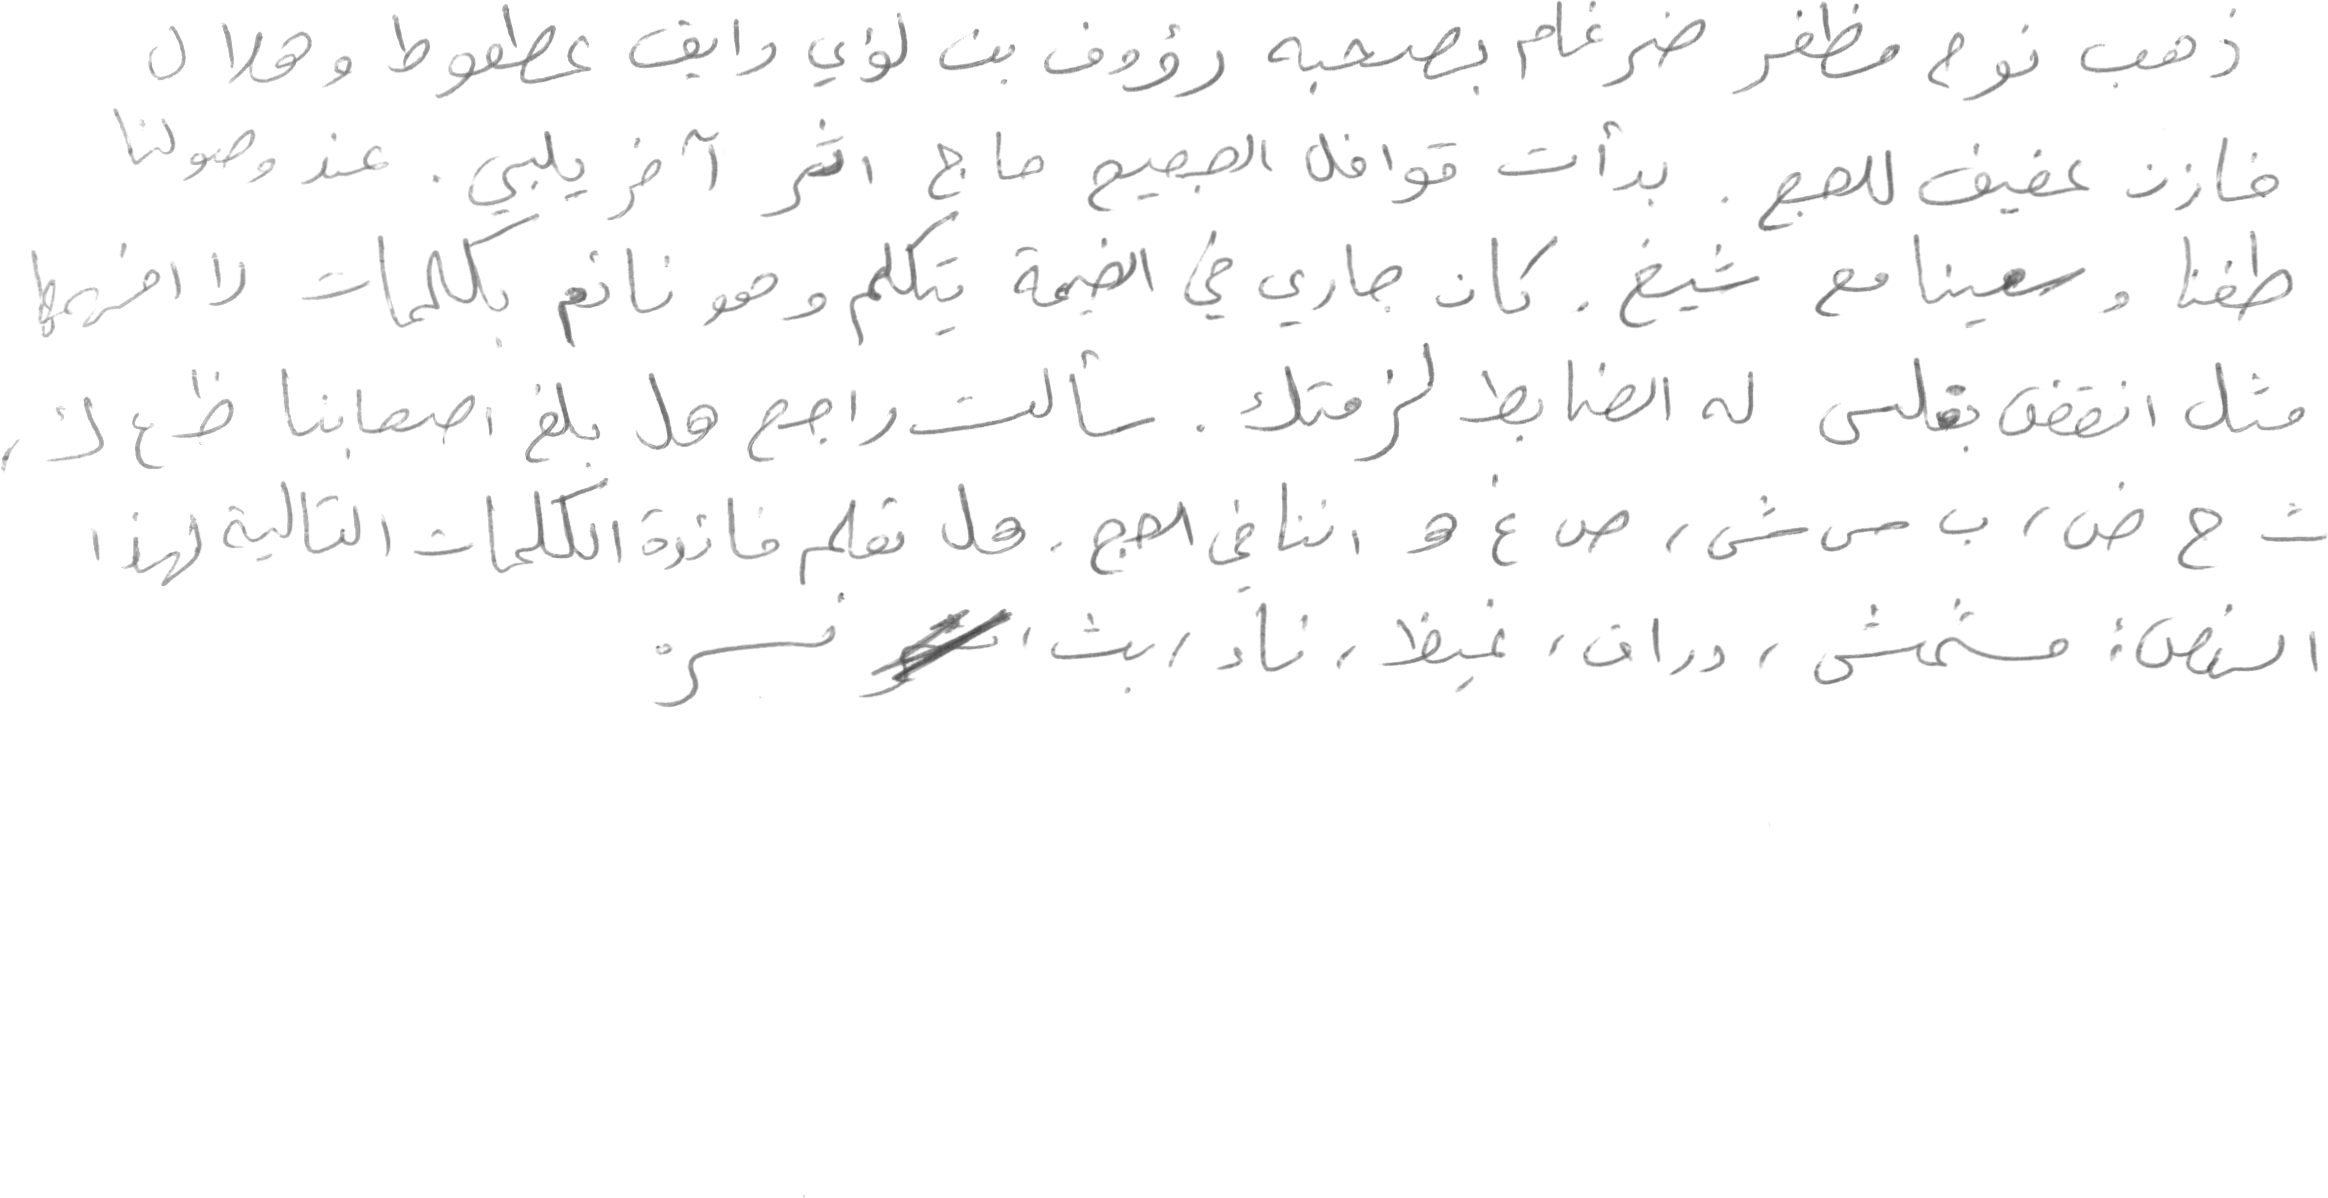 ذهب نوح مظفر ضرغام بصحبه رؤوف بن لؤي رايق عطعوط وهلال
خازن عفيف للحج. بدأت قوافل الحجيج حاج اثر آخر يلبي. عند وصولنا
طفنا وسعينا مع شيخ. كان جاري في الخيمة يتكلم وهو نائم بكلمات لا افهمها
مثل انقض بغلس له الضابط لزمتك. سألت راجح هل بلغ اصحابنا ظ ع ك،
ث ح ض، ب س ش، ص غ ه اننا في الحج. هل تعلم فائدة الكلمات التالية لهذا
النص: مشمش، دراق، غيظ، ناء، بث،